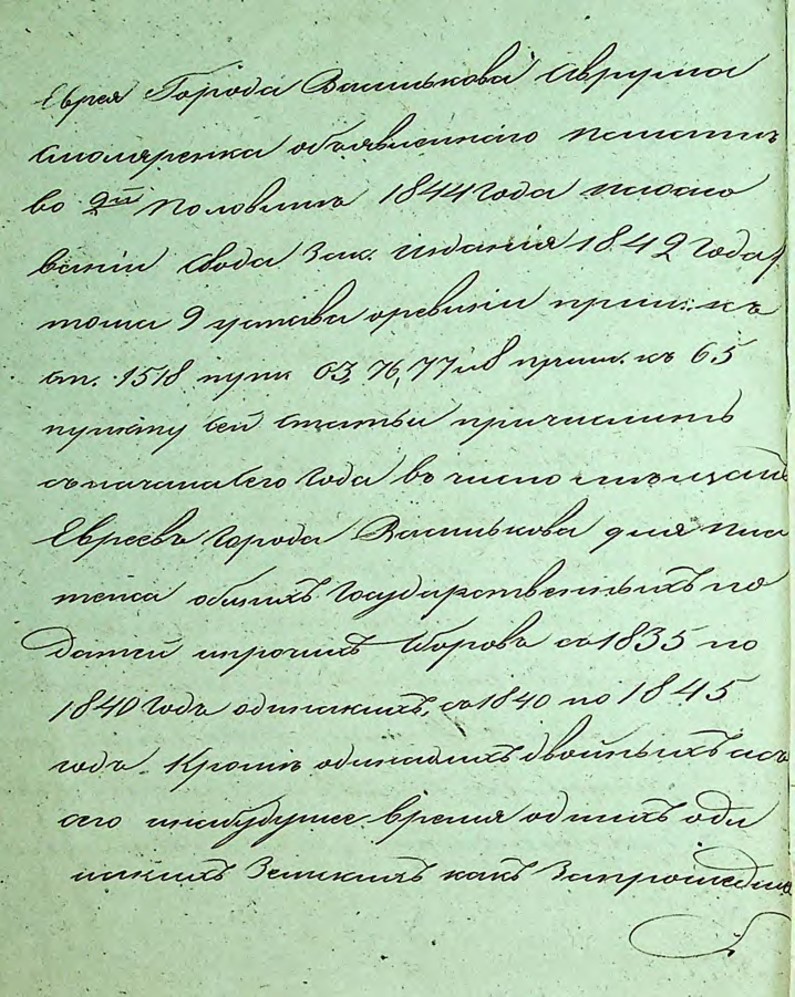 Еврея Города Василькова Аврума
Смоляренка объявленнаго палатѣ
во 2й половинѣ 1844 года наосно
ваніи Свода Зак. изданія 1842 года
тома 9 устава оревизіи прим: къ
ст. 1518 пунк 63, 76, 77 и 8 прим. къ 65
пункту сей статьи причислить
съ начала сего года въ число мѣщанъ
Евреевъ города Василькова для пла
тежа общихъ Государственныхъ по
датей ипрочихъ сборовъ съ 1835 по
1840 годъ одинакихъ, съ 1840 по 1845
годъ кромѣ одинакихъ двойныхъ асъ
сего инабудущее время однихъ оди
накихъ Земскихъ какъ Запрошедшее